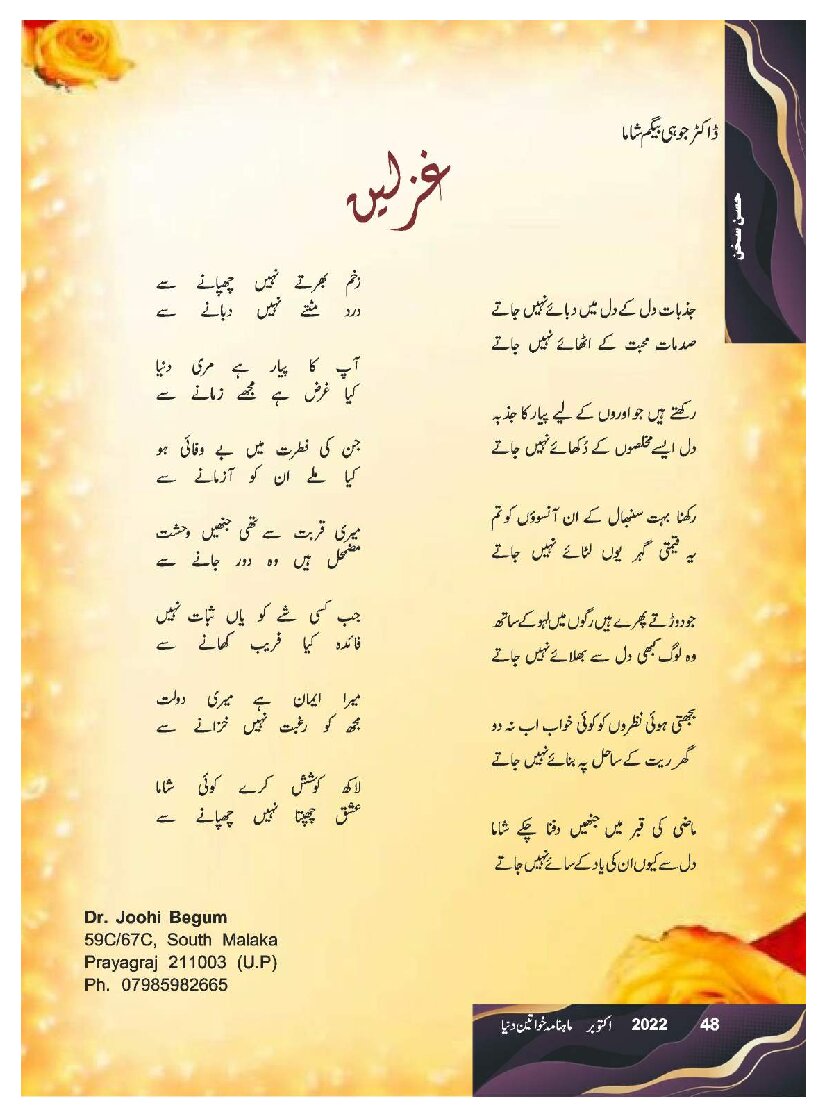 ڈاکٹر جوہی بیگم شاما
حسن سخن
غزلیں
جذبات دل کے دل میں دبائے نہیں جاتے
صدمات محبت کے اٹھائے نہیں جاتے
رکھتے ہیں جو اوروں کے لیے پیار کا جذبہ
دل ایسے مخلصوں کے دُکھائے نہیں جاتے
رکھنا بہت سنبھال کے ان آنسوؤں کو تم
یہ قیمتی گہر یوں لٹائے نہیں جاتے
جو دوڑتے پھرے ہیں رگوں میں لہو کے ساتھ
وہ لوگ کبھی دل سے بھلائے نہیں جاتے
بجھتی ہوئی نظروں کو کوئی خواب اب نہ دو
گھر ریت کے ساحل پہ بنائے نہیں جاتے
ماضی کی قبر میں جنھیں دفنا چکے شاما
دل سے کیوں ان کی یاد کے سائے نہیں جاتے
زخم بھرتے نہیں چھپانے سے
درد مٹتے نہیں دبانے سے
آپ کا پیار ہے مری دنیا
کیا غرض ہے مجھے زمانے سے
جن کی فطرت میں بے وفائی ہو
کیا ملے ان کو آزمانے سے
میری قربت سے تھی جنھیں وحشت
مضمحل ہیں وہ دور جانے سے
جب کسی شے کو یاں ثبات نہیں
فائدہ کیا فریب کھانے سے
میرا ایمان ہے میری دولت
مجھ کو رغبت نہیں خزانے سے
لاکھ کوشش کرے کوئی شاما
عشق چھپتا نہیں چھپانے سے
Dr. Joohi Begum
59C/67C, South Malaka
Prayagraj 211003 (U.P)
Ph. 07985982665
ماہنامہ خواتین دنیا اکتوبر 2022 48